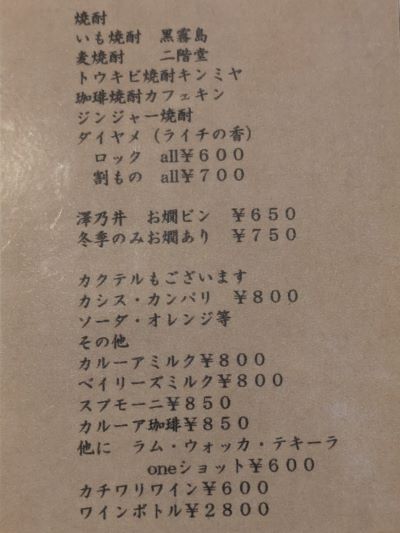 焼酎
いも焼酎　黒霧島
麦焼酎　　二階堂
トウキビ焼酎キンミヤ
珈琲焼酎カフェキン
ジンジャー焼酎
ダイヤメ（ライチの香）
ロック　all￥６００
割もの　all￥７００
澤乃井　お燗ビン　￥６５０
冬季のみお燗あり　￥７５０
カクテルもございます
カシス・カンパリ　￥８００
ソーダ・オレンジ等
その他
カルーアミルク￥８００
ベイリーズミルク￥８００
スプモーニ￥８５０
カルーア珈琲￥８５０
他に　ラム・ウォッカ・テキーラ
oneショット￥６００
カチワリワイン￥６００
ワインボトル￥２８００